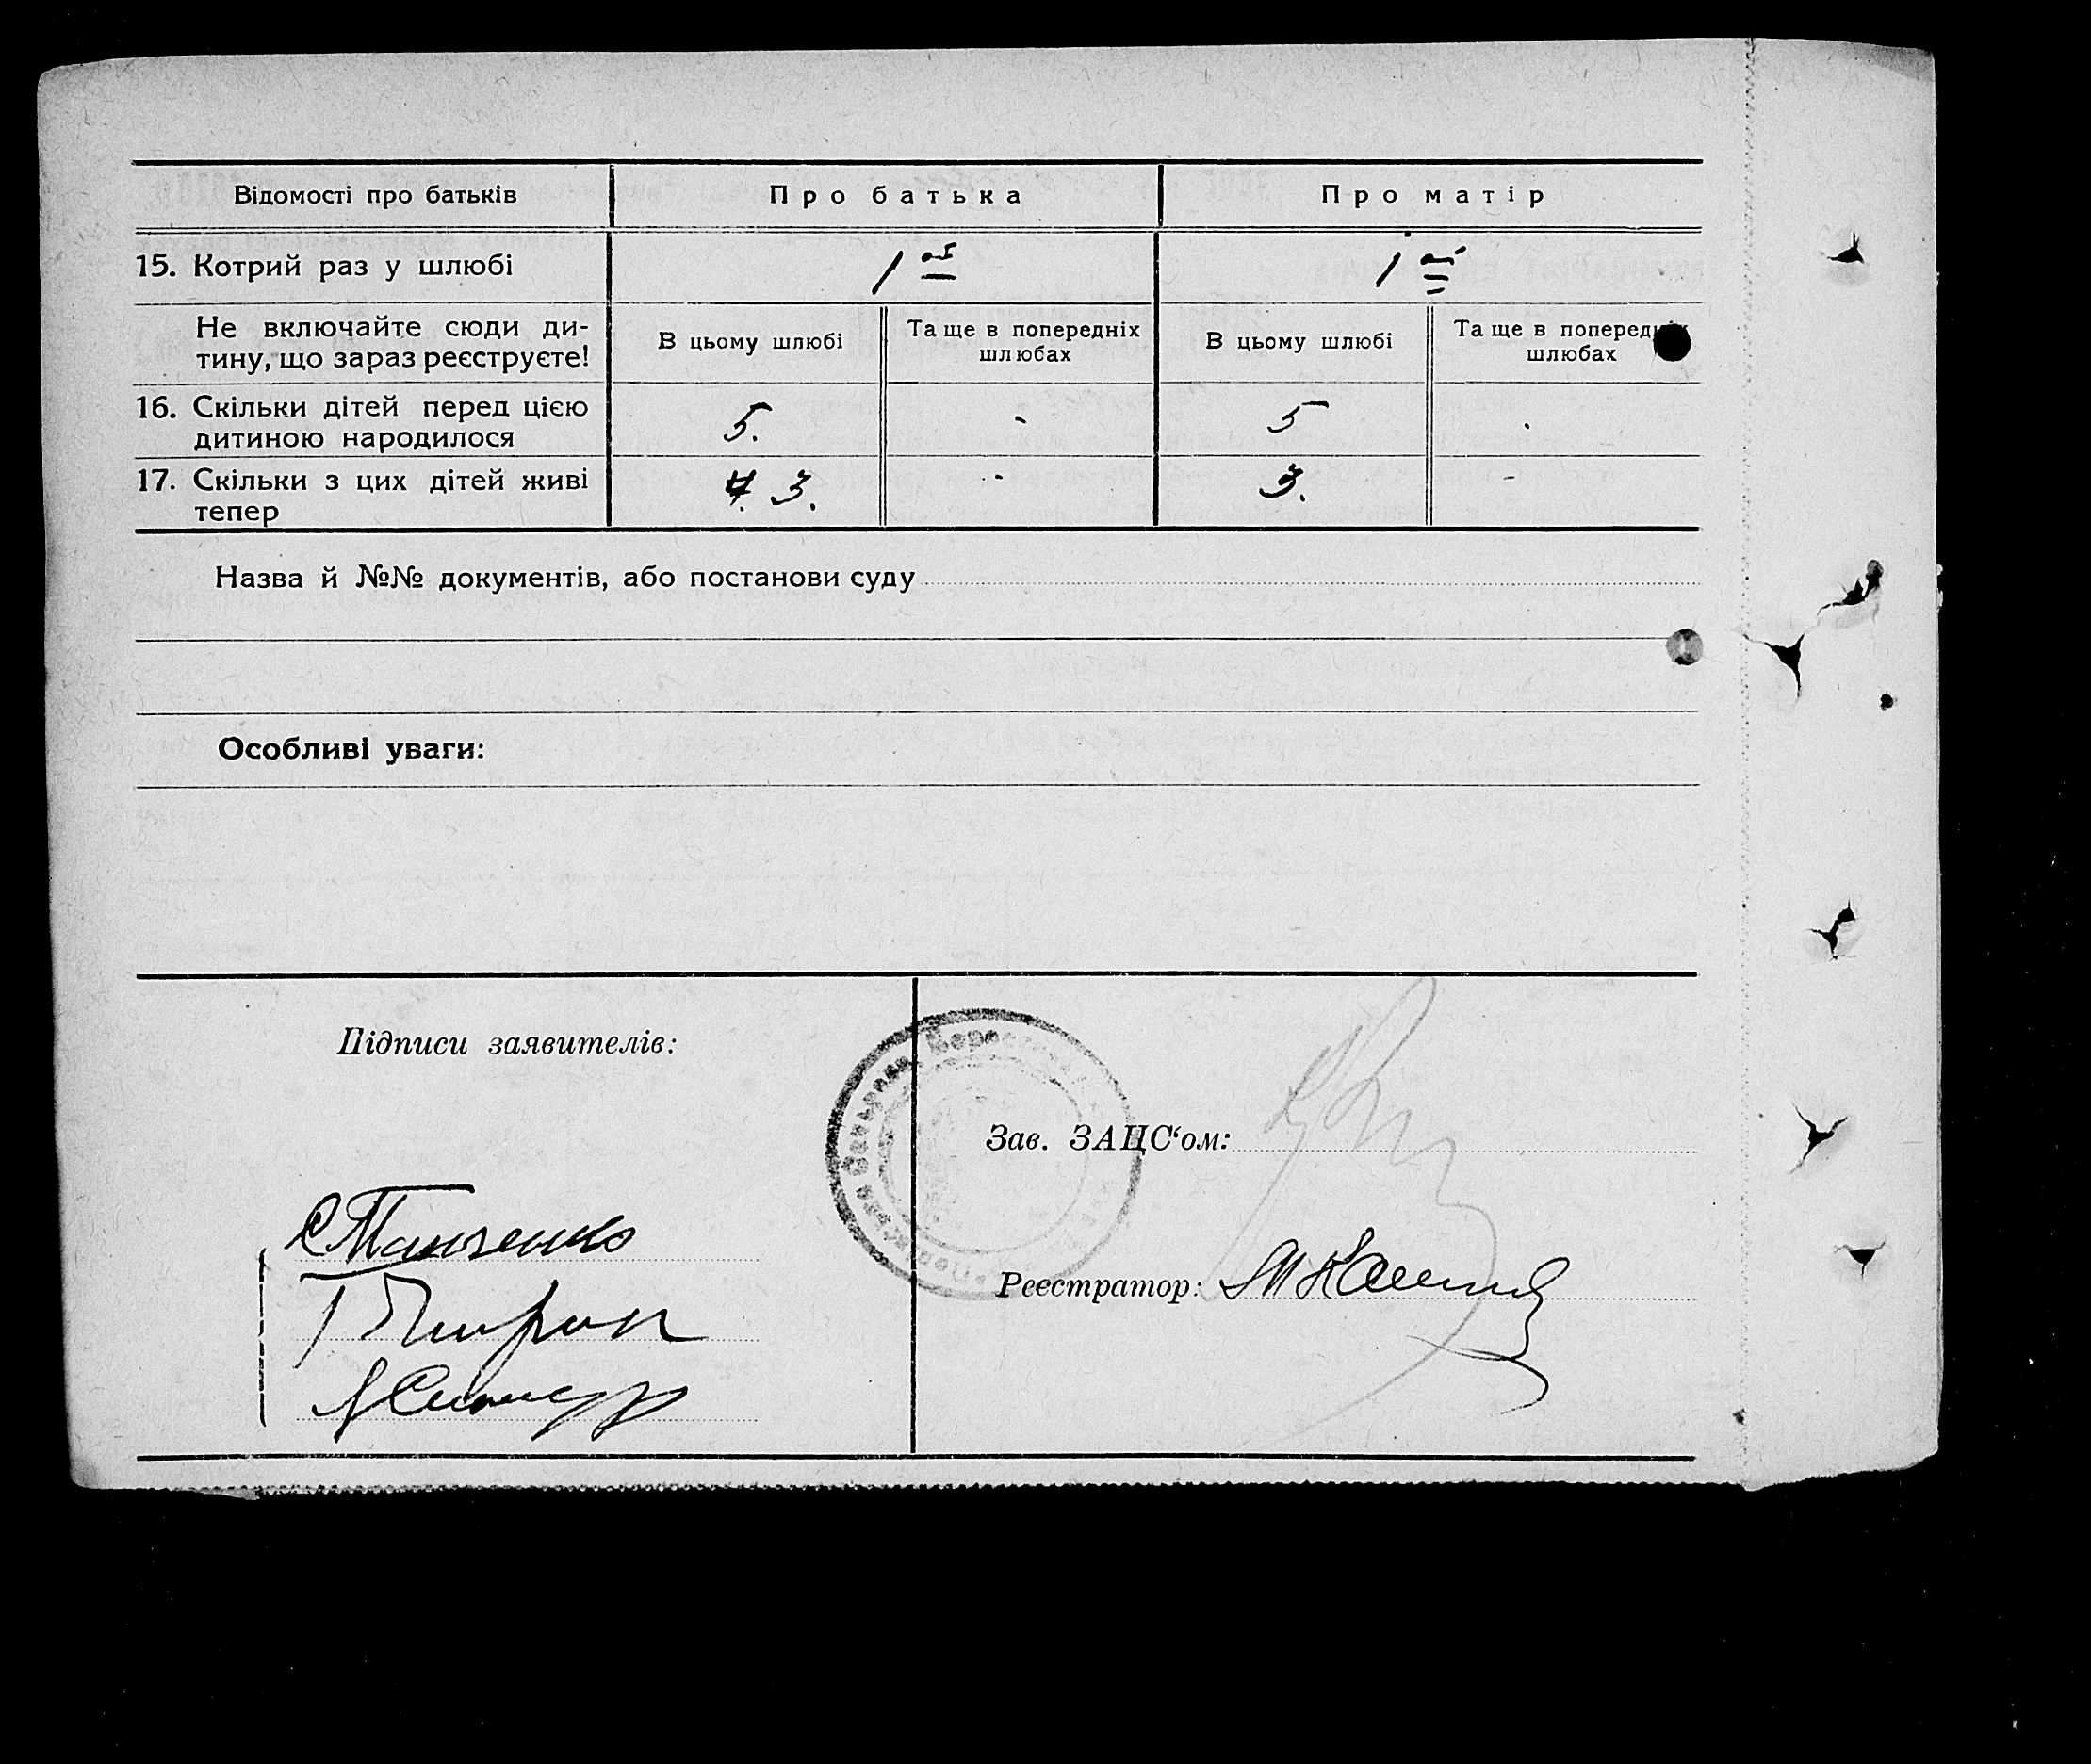 Відомості про батьків Про батька Про матір
15. Котрий раз у шлюбі 1 1
Не включайте сюди ди- В цьому шлюбі Та ще в попередніх В цьому шлюбі Та ще в
тину, що зараз реєструєте! шлюбах шлюбах
16. Скільки дітей перед цією 5. - 5 .
дитиною народилося
17. Скільки з цих дітей живі 4. 3. - 3. -
тепер
Назва й №№ документів, або постанови суду
Особливі уваги:
Підписи заявителів:
Зав. ЗАЦС‘ом:
Реєстратор: